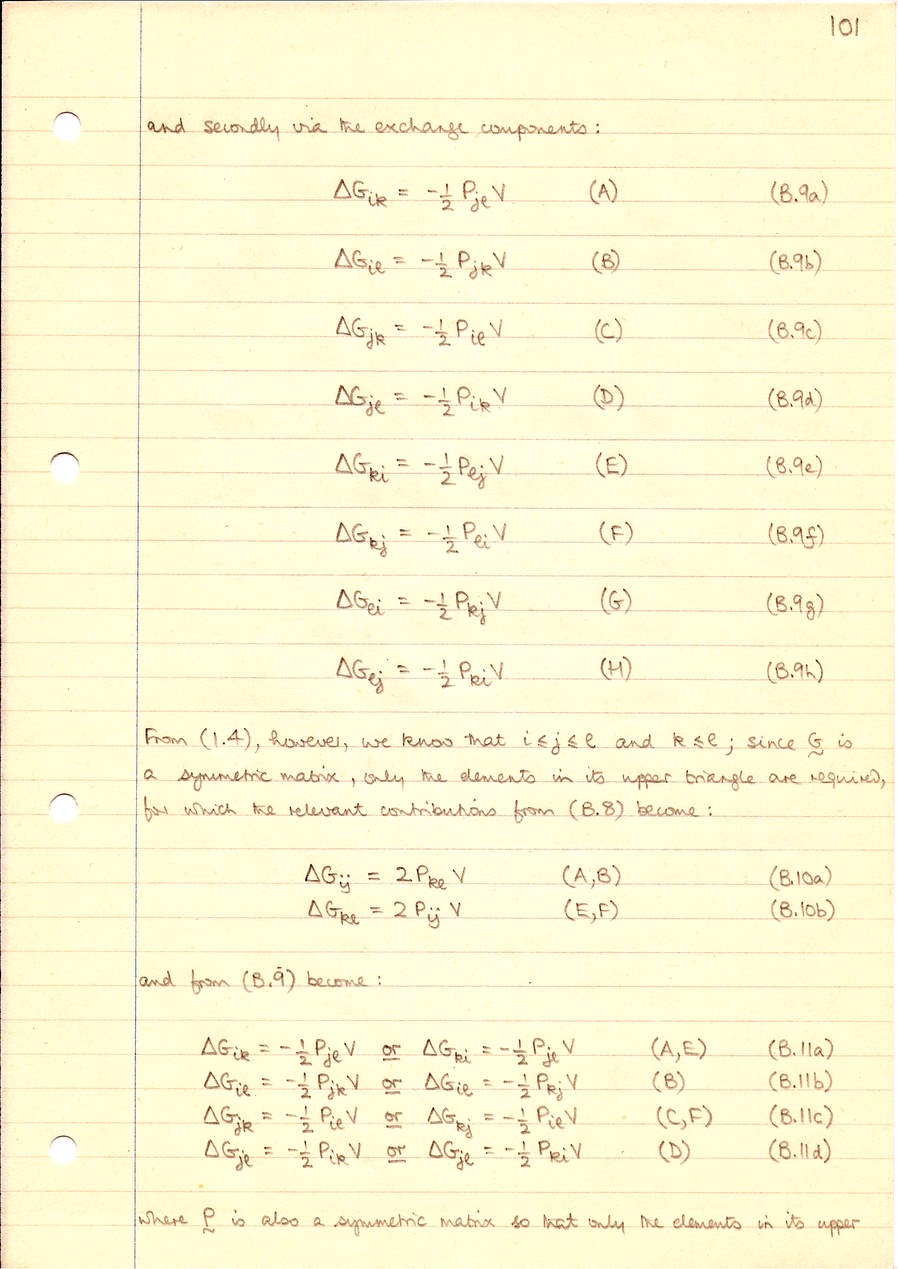 101
and secondly via the exchange components:
ΔG_ik = -½ P_jl V (A) (B.9a)
ΔG_il = -½ P_jk V (B) (B.9b)
ΔG_jk = -½ P_il V (C) (B.9c)
ΔG_jl = -½ P_ik V (D) (B.9d)
ΔG_ki = -½ P_lj V (E) (B.9e)
ΔG_kj = -½ P_li V (F) (B.9f)
ΔG_li = -½ P_kj V (G) (B.9g)
ΔG_lj = -½ P_ki V (H) (B.9h)
From (1.4), however, we know that i≤j≤l and k≤l; since G is
a symmetric matrix, only the elements in its upper triangle are required,
for which the relevant contributions from (B.8) become:
ΔG_ij = 2P_kl V (A,B) (B.10a)
ΔG_kl = 2P_ij V (E,F) (B.10b)
and from (B.9) become:
ΔG_ik = -½ P_jl V or ΔG_ki = -½ P_jl V (A,E) (B.11a)
ΔG_il = -½ P_jk V or ΔG_il = -½ P_kj V (B) (B.11b)
ΔG_jk = -½ P_il V or ΔG_kj = -½ P_il V (C,F) (B.11c)
ΔG_jl = -½ P_ik V or ΔG_jl = -½ P_ki V (D) (B.11d)
where P is also a symmetric matrix so that only the elements in its upper